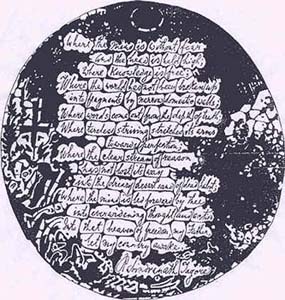 Where the mind is without fear
and the head is held high
Where knowledge is free
Where the world has not been broken up
into fragments by narrow domestic walls
Where words come out from the depth of truth
Where tireless striving stretches its arms
towards perfection
Where the clear stream of reason
has not lost its way
into the dreary desert sand of dead habit
Where the mind is led forward by thee
into ever-widening thought and action
Into that heaven of freedom, my Father,
let my country awake.
Rabindranath Tagore